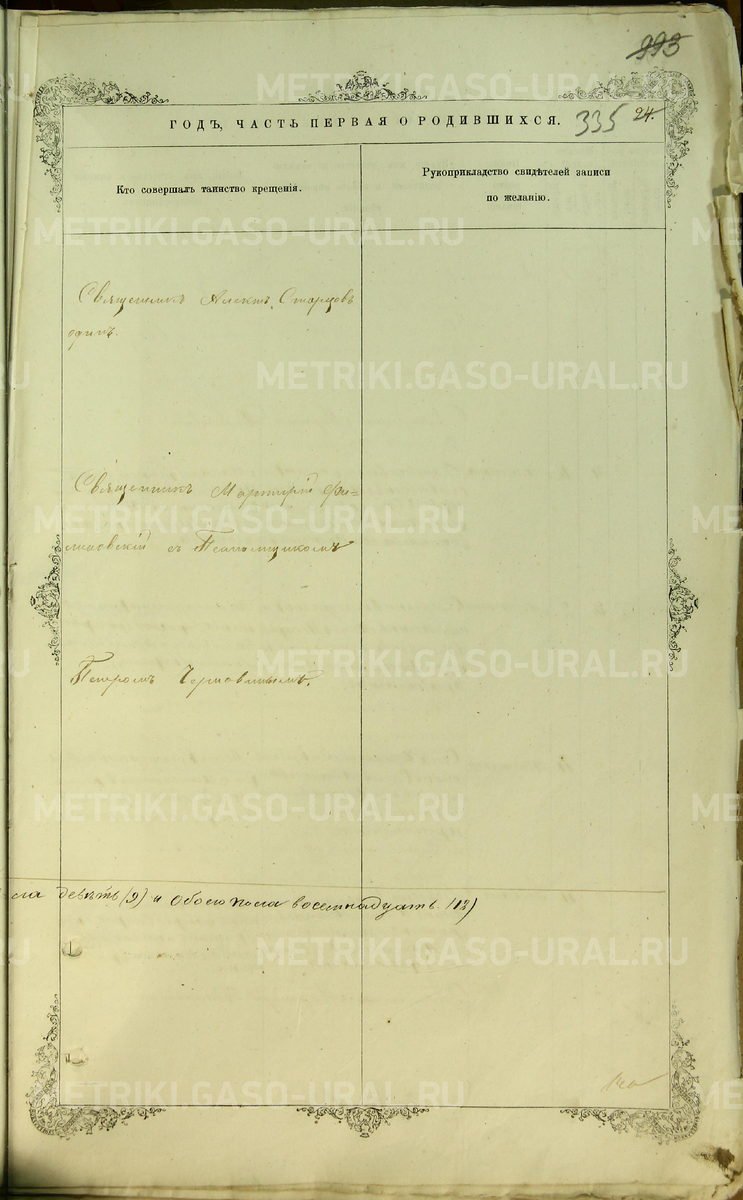 993
ГОДЪ, ЧАСТЬ ПЕРВАЯ О РОДИВШИХСЯ. 335 24.
Кто совершалъ таинство крещенія.
Рукоприкладство свидѣтелей записи
по желанію.
Священникъ Алекѣй Старцовъ
однимъ.
Священникъ Мартирій
съ Псаломщикомъ
Петромъ
девять (9) и обоего пола восемнадцать (18)
METRIKI.GASO-URAL.RU